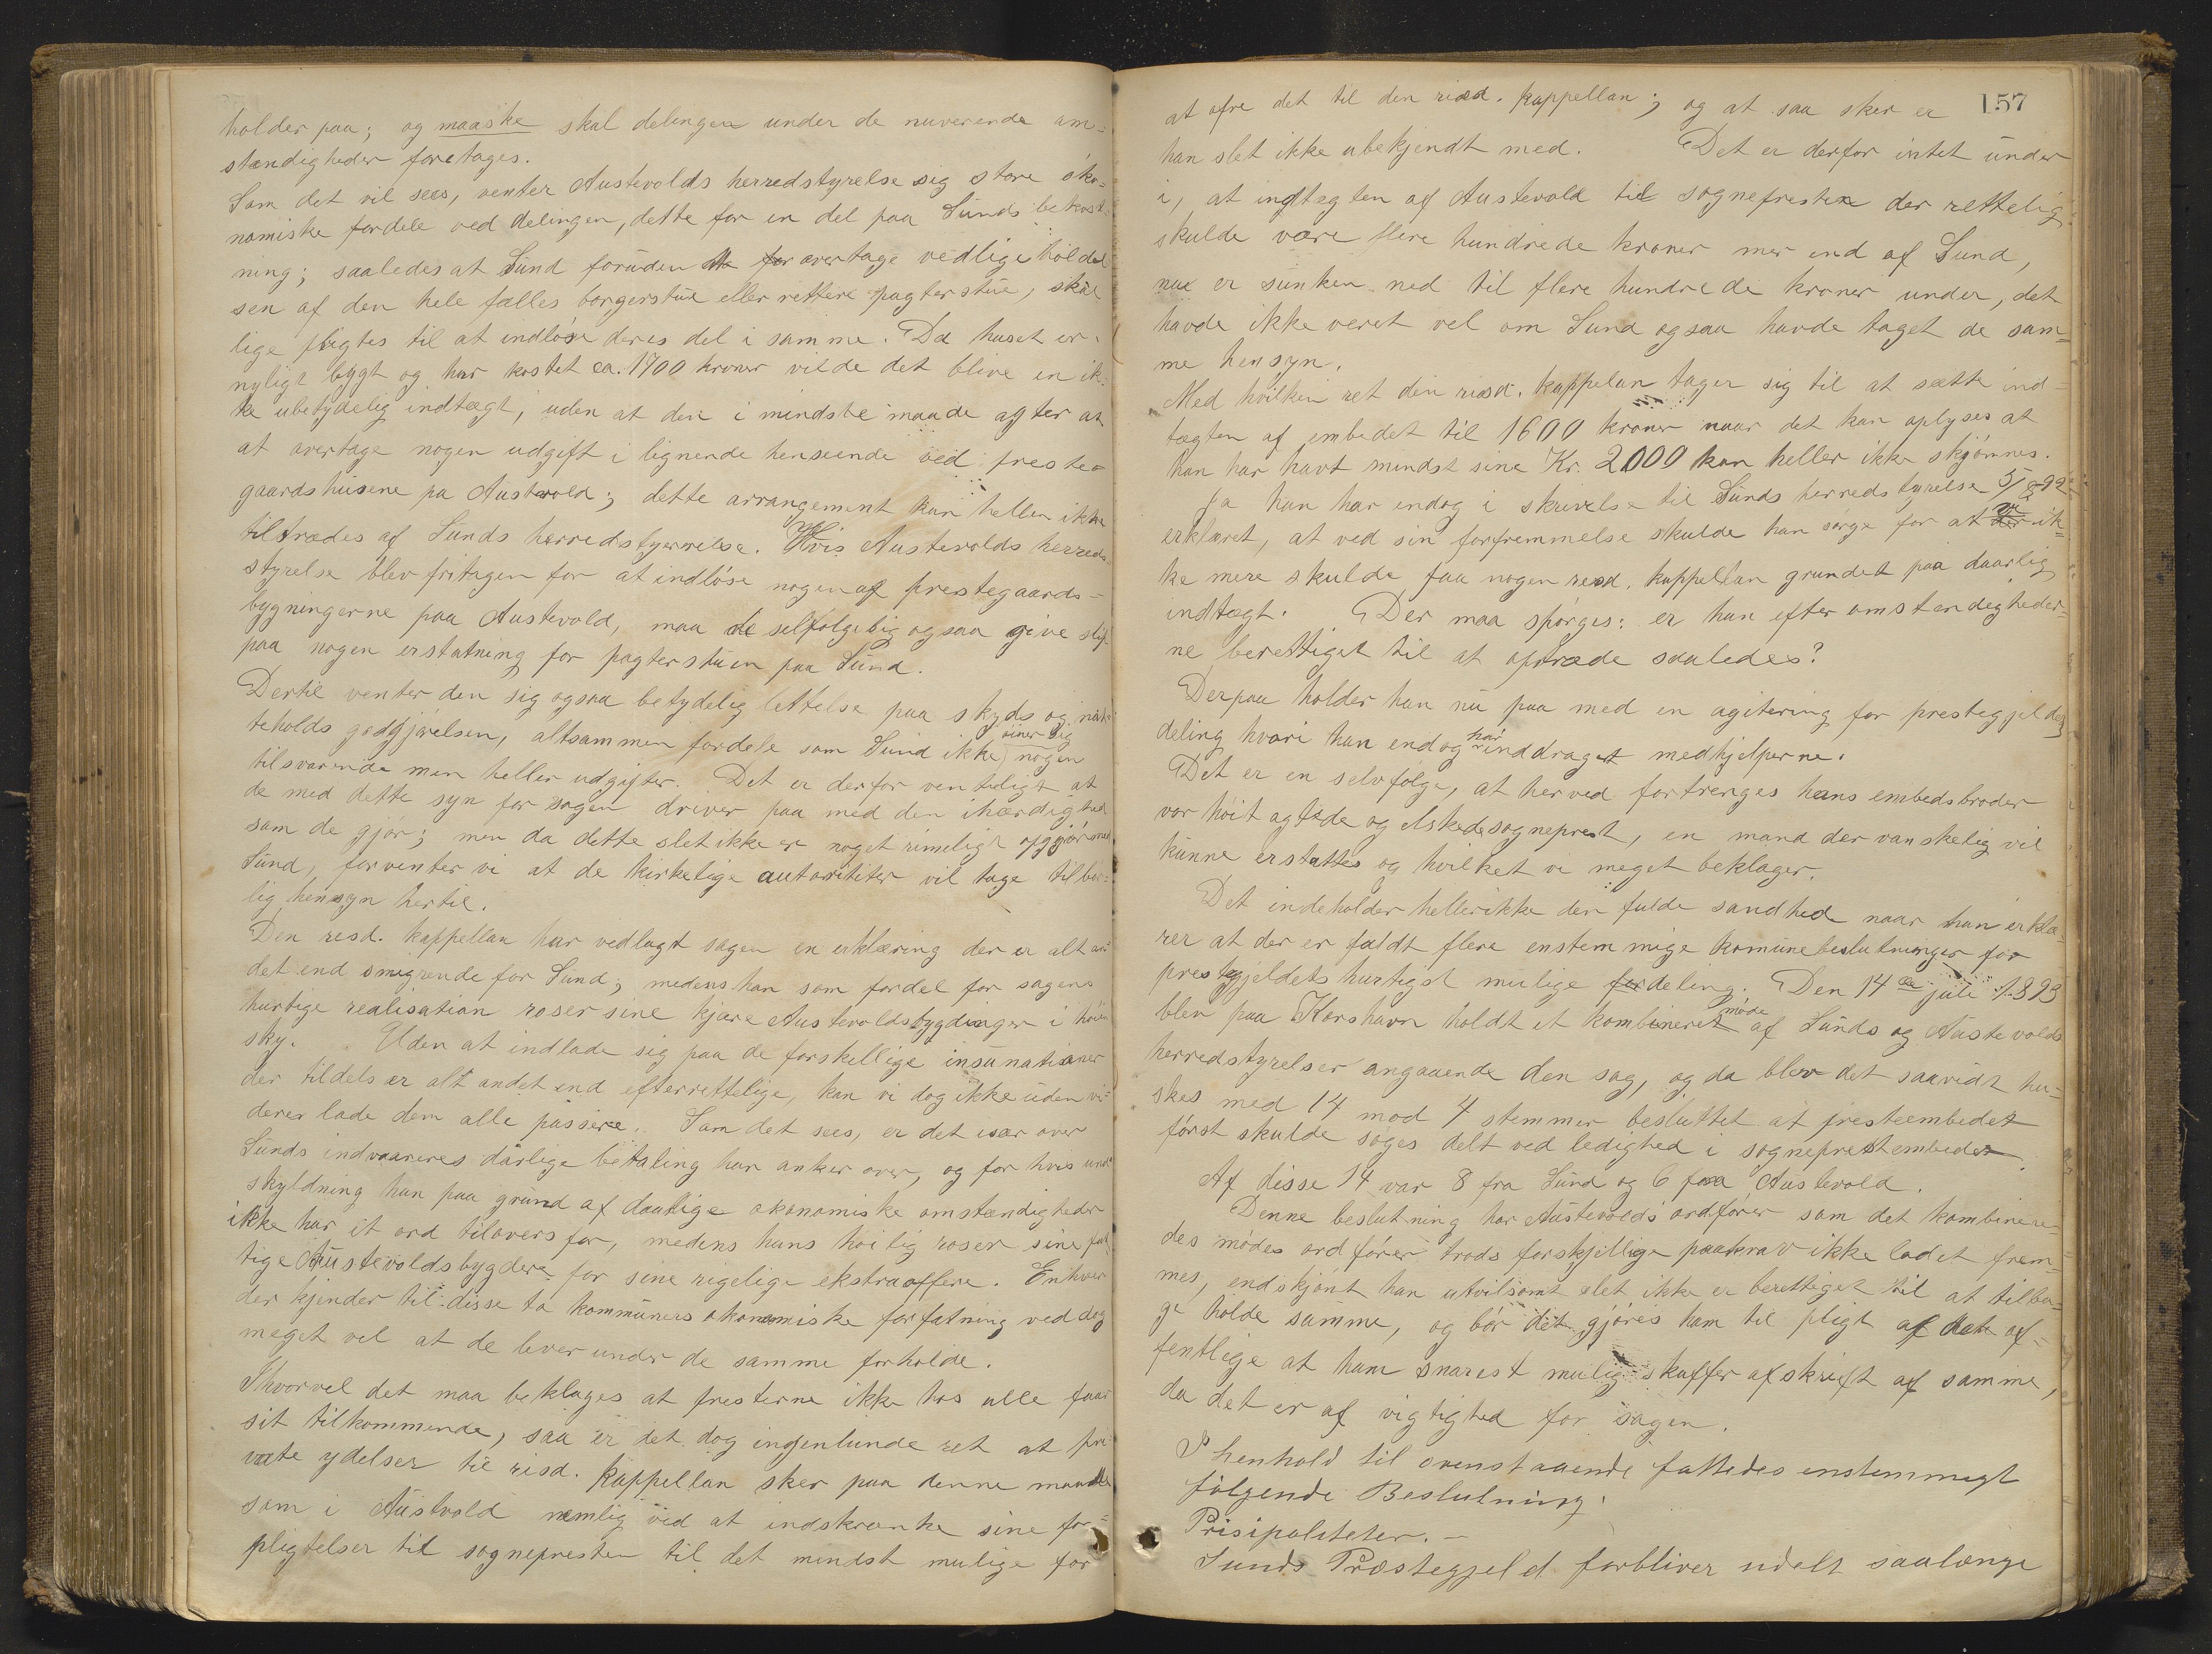 holder paa; og maaske skal delingen under de nuverende om=
stændigheder foretages.
Som det vil sees, venter Austevolds herredstyrelse sig store øko=
nomiske fordele ved delingen, dette for en del paa Sunds bekost=
ning; saaledes at Sund foruden at overtage vedligeholdel
sen af den hele fælles borgerstue eller rettere pagterstue, skal
lige pligtes til at indløse deres del i samme. Da huset er
nyligt bygt og har kostet ca. 1700 kroner vilde det blive en ik=
ke ubetydelig indtægt, uden at den i mindste maade agter at
at overtage nogen udgift i lignende henseende ved preste=
gaardshusene pa Austevold; dette arrangement kan heller ikke
tiltrædes af Sunds herredstyrrelse. Hvis Austevolds herreds=
styrelse blev fritagen for at indløse nogen af prestegaards=
bygningerne paa Austevold, maa de selfølgelig ogsaa give slip
paa nogen erstatning for pagterstuen paa Sund.
Dertil venter den sig ogsaa betydelig lettelse paa skyds og nat=
teholds godtgjørelsen, altsammen fordele som Sund ikke øiner sig nogen
tilsvarende men heller udgifter. Det er derfor venteligt at
de med dette syn for sagen driver paa med den ihærdighed
som de gjør; men da dette slet ikke er noget rimeligt opgjør med
Sund, forventer vi at de kirkelige autoriteter vil tage tilbør=
lig hensyn hertil.
Den resd. kappellan har vedlagt sagen en erklæring der er alt an
det end smigrende for Sund; medens han som fordel for sagens
hurtige realisation roser sine kjære Austevoldsbygdinger i høien
sky. Uden at indlade sig paa de forskellige insunationer
der tildels er alt andet end efterrettelige, kan vi dog ikke uden vi=
derer lade dem alle passere. Som det sees, er det især over
Sunds indvaaneres dårlige betaling han anker over, og for hvis und
skyldning han paa grund af daarlige økonomiske omstændigheder
ikke har et ord tilovers for, medens hans høilig roser sine fat
tige Austevoldsbygder for sine rigelige ekstraoffere. Enhver
der kjender til disse to kommuners økonomiske forfatning ved dog
meget vel at de lever under de samme forholde.
Ihvorvel det maa beklages at presterne ikke hos alle faar
sit tilkommende, saa er det dog ingenlunde ret at pri
vate ydelser til resd. kappellan sker paa denne maade
som i Austvold nemlig ved at indskrænke sine for=
pligtelser til sognepresten til det mindst mulige for
157
at ofre det til den resd. kappellan; og at saa sker er
han slet ikke ubekjendt med. Det er derfor intet under
i, at indtægten af Austevold til sognepresten der rettelig
skulde være flere hundrede kroner mer end af Sund,
nu er sunken ned til flere hundrede kroner under, det
havde ikke veret vel om Sund ogsaa havde taget de sam=
me hensyn.
Med hvilken ret den resd. kappelan tager sig til at sætte ind=
tægten af embedet til 1600 kroner naar det kan oplyses at
han har havt mindst sine Kr. 2000 kan heller ikke skjønnes.
Ja han har endog i skrivelse til Sunds herredstyrelse
erklæret, at ved sin forfremmelse skulde han sørge for at vi ik=
ke mere skulde faa nogen resd. kappellan grundet paa daarlig
indtægt. Der maa spørges: er han efter omstændigheder=
ne berettiget til at optræde saaledes?
Derpaa holder han nu paa med en agitering for prestegjeldes
deling hvori han endog har inddraget medhjelperne.
Det er en selvfølge, at herved fortrenges hans embedsbroder
vor høit agtede og elskede sogneprest, en mand der vanskelig vil
kunne erstattes og hvilket vi meget beklager.
Det indeholder heller ikke den fulde sandhed naar han erklæ=
rer at der er faldt flere enstemmige komunebeslutninger for
prestegjeldets hurtigst mulige deling. Den 14de juli 1893
blev paa Korshavn holdt et kombineret møde af Sunds og Austevolds
herredstyrelser angaaende den sag, og da blev det saavidt hu=
skes med 14 mod 4 stemmer besluttet at presteembedet
først skulde søges delt ved ledighed i sogneprestembedet.
Af disse 14 var 8 fra Sund og 6 fra Austevold.
Denne beslutning har Austevolds ordfører som det kombinere=
des mødes ordfører trods forskjellige paakrav ikke ladet frem=
mes, endskjønt han utvilsomt slet ikke er berettiget til at tilba=
ge holde samme, og bør det gjøres ham til pligt af det of=
fentlige at han snarest mulig skaffer afskrift af samme,
da det er af vigtighed for sagen.
I henhold til ovenstaaende fattedes enstemmigt
følgende Beslutning:
Prisipaliteter.-
Sunds Præstegjeld forbliver udelt saalænge